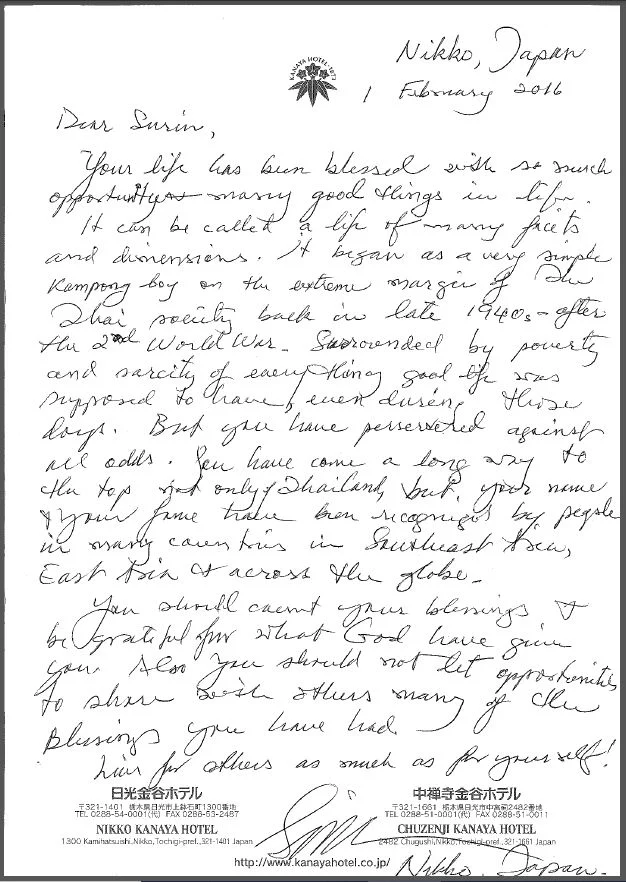 KANAYA HOTEL · 1873
Nikko, Japan
1 February 2016
Dear Surin,
Your life has been blessed with so much
opportunity many good things in life.
It can be called a life of many facets
and dimensions. It began as a very simple
Kampong boy on the extreme margin of the
Thai society back in late 1940s - after
the 2nd World War. Surrounded by poverty
and sarcity of every thing good life was
supposed to have, even during those
days. But you have persevered against
all odds. You have come a long way to
the top not only of Thailand, but, your name
& your fame have been recognized by people
in many countries in Southeast Asia,
East Asia & across the globe.
You should count your blessings &
be grateful for what God have give
you. Also you should not let opportunities
to share with others many of the
Blessings you have had.
Live for others as much as for yourself!
日光金谷ホテル 中禅寺金谷ホテル
〒321-1401 栃木県日光市上鉢石町1300番地 〒321-1661 栃木県日光市中宮祠2482番地
TEL 0288-54-0001(代) FAX 0288-53-2487 TEL 0288-51-0001(代) FAX 0288-51-0011
NIKKO KANAYA HOTEL CHUZENJI KANAYA HOTEL
1300 Kamihatsuishi, Nikko, Tochigi-pref., 321-1401 Japan 2482 Chugushi, Nikko, Tochigi-pref., 321-1661 Japan
http://www.kanayahotel.co.jp/
Nikko, Japan.